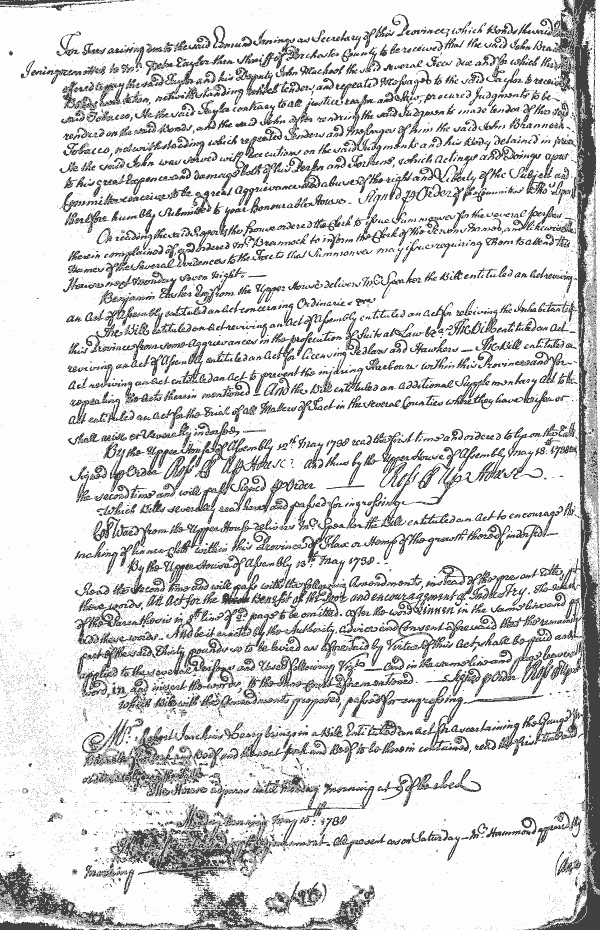 For Fees arising due to the said Edmund Jenings as Secretary of this Province, which Bonds the said
Jenings remitted to Mr. John Taylor then Sheriff of Dorchester County to be received that the said John Brannock
offered to pay the said Taylor and his Deputy John Mackeel the said several Fees due and for which the
Bonds were taken, notwithstanding which tenders and repeated Messages to the said Taylor to receive
said Tobacco, He the said Taylor contrary to all justice reason and Law, procured Judgments to be
rendered on the said Bonds, and the said John after rendring the said Judgments made tender of the said
Tobacco, notwithstanding which repeated Tenders and Messages of him the said John Brannock
He the said John was served with Executions on the said Judgments and his Body detained in prison
to his great Expence and damage both of his Person and Fortune, which Actings and Doings your
Committee conceive to be a great Aggrievance and abuse of the right and Liberty of the Subject and
therefore humbly Submitted to your honourable House. Signed p Order of the Committee
On reading the said Report the House ordered the Clerk to issue Summons for the several persons
therein complained of, and ordered Mr. Brannock to inform the Clerk of the Persons Names, and likewise the
Names of the several Evidences to the Facts that Summons may issue requiring them to attend this
House next Monday seven night. —
Benjamin Tasker Esqr. from the Upper House delivers Mr. Speaker the Bill entituled an Act reviving
an Act of Assembly entituled an Act concerning Ordinaries
The Bill entituled an Act reviving an Act of Assembly entituled an Act for relieving the Inhabitants of
this Province from some Aggrievances in the prosecution of Suits at Law &ca. The Bill entituled an Act
reviving an Act of Assembly entituled an Act for Licensing Pedlars and Hawkers — The Bill entituled an
Act reviving an Act entituled an Act to prevent the injuring Harbours within this Province and for
repealing the Acts therein mentioned — And the Bill entituled an additional Supplementary Act to the
Act entituled an Act for the Trial of all Matters of Fact in the several Counties where they have arisen or
shall arise or Severally indorsed —
By the Upper House of Assembly 12th. May 1738 read the first time and ordered to lye on the Table
Signed p Order Ross Cl Up House. And thus by the Upper House of Assembly May 13th. 1738 read
the second time and will pass. Signed p Order — Ross Cl Upr House
Which Bills severally read here, and passed for ingrossing —
Col Ward from the Upper House delivers Mr. Speaker the Bill entituled an Act to encourage the
making of Linnen Cloth within this Province of Flax or Hemp of the growth thereof indorsed —
By the Upper House of Assembly 13th. May 1738 —
Read the second time and will pass with the following Amendments, instead of the present Title
these words, An Act for the Benefit of the Poor and encouragement of Industry. The
of the Parenthesis in 8th line of 2d page to be omitted. after the word Linnen in the same line add
add these words. And be it enacted by the Authority Advice and Consent aforesaid that the remaining
part of the said Thirty pounds so to be levied as aforesaid by Virtue of this Act, shall be paid and
applied to the several Persons and Uses following Vizt. — And in the same line and page leave out
word, in and insert the words to the
which Bill with the Amendments proposed, passed for engrossing.
Mr. Robert Jenckins Henry brings in a Bill Entituled an Act for ascertaining the Gauge of
Barrels for Pork and Beef, and the nett Pork and Beef to be therein contained, read the first time and
ordered to lye on the Table
The House adjourns until Monday Morning at 9 of the clock
Monday Morning May 15th. 1738
The House met according to Adjournment. All present as on Saturday — Mr. Hammond appeared this
Morning —
(96)